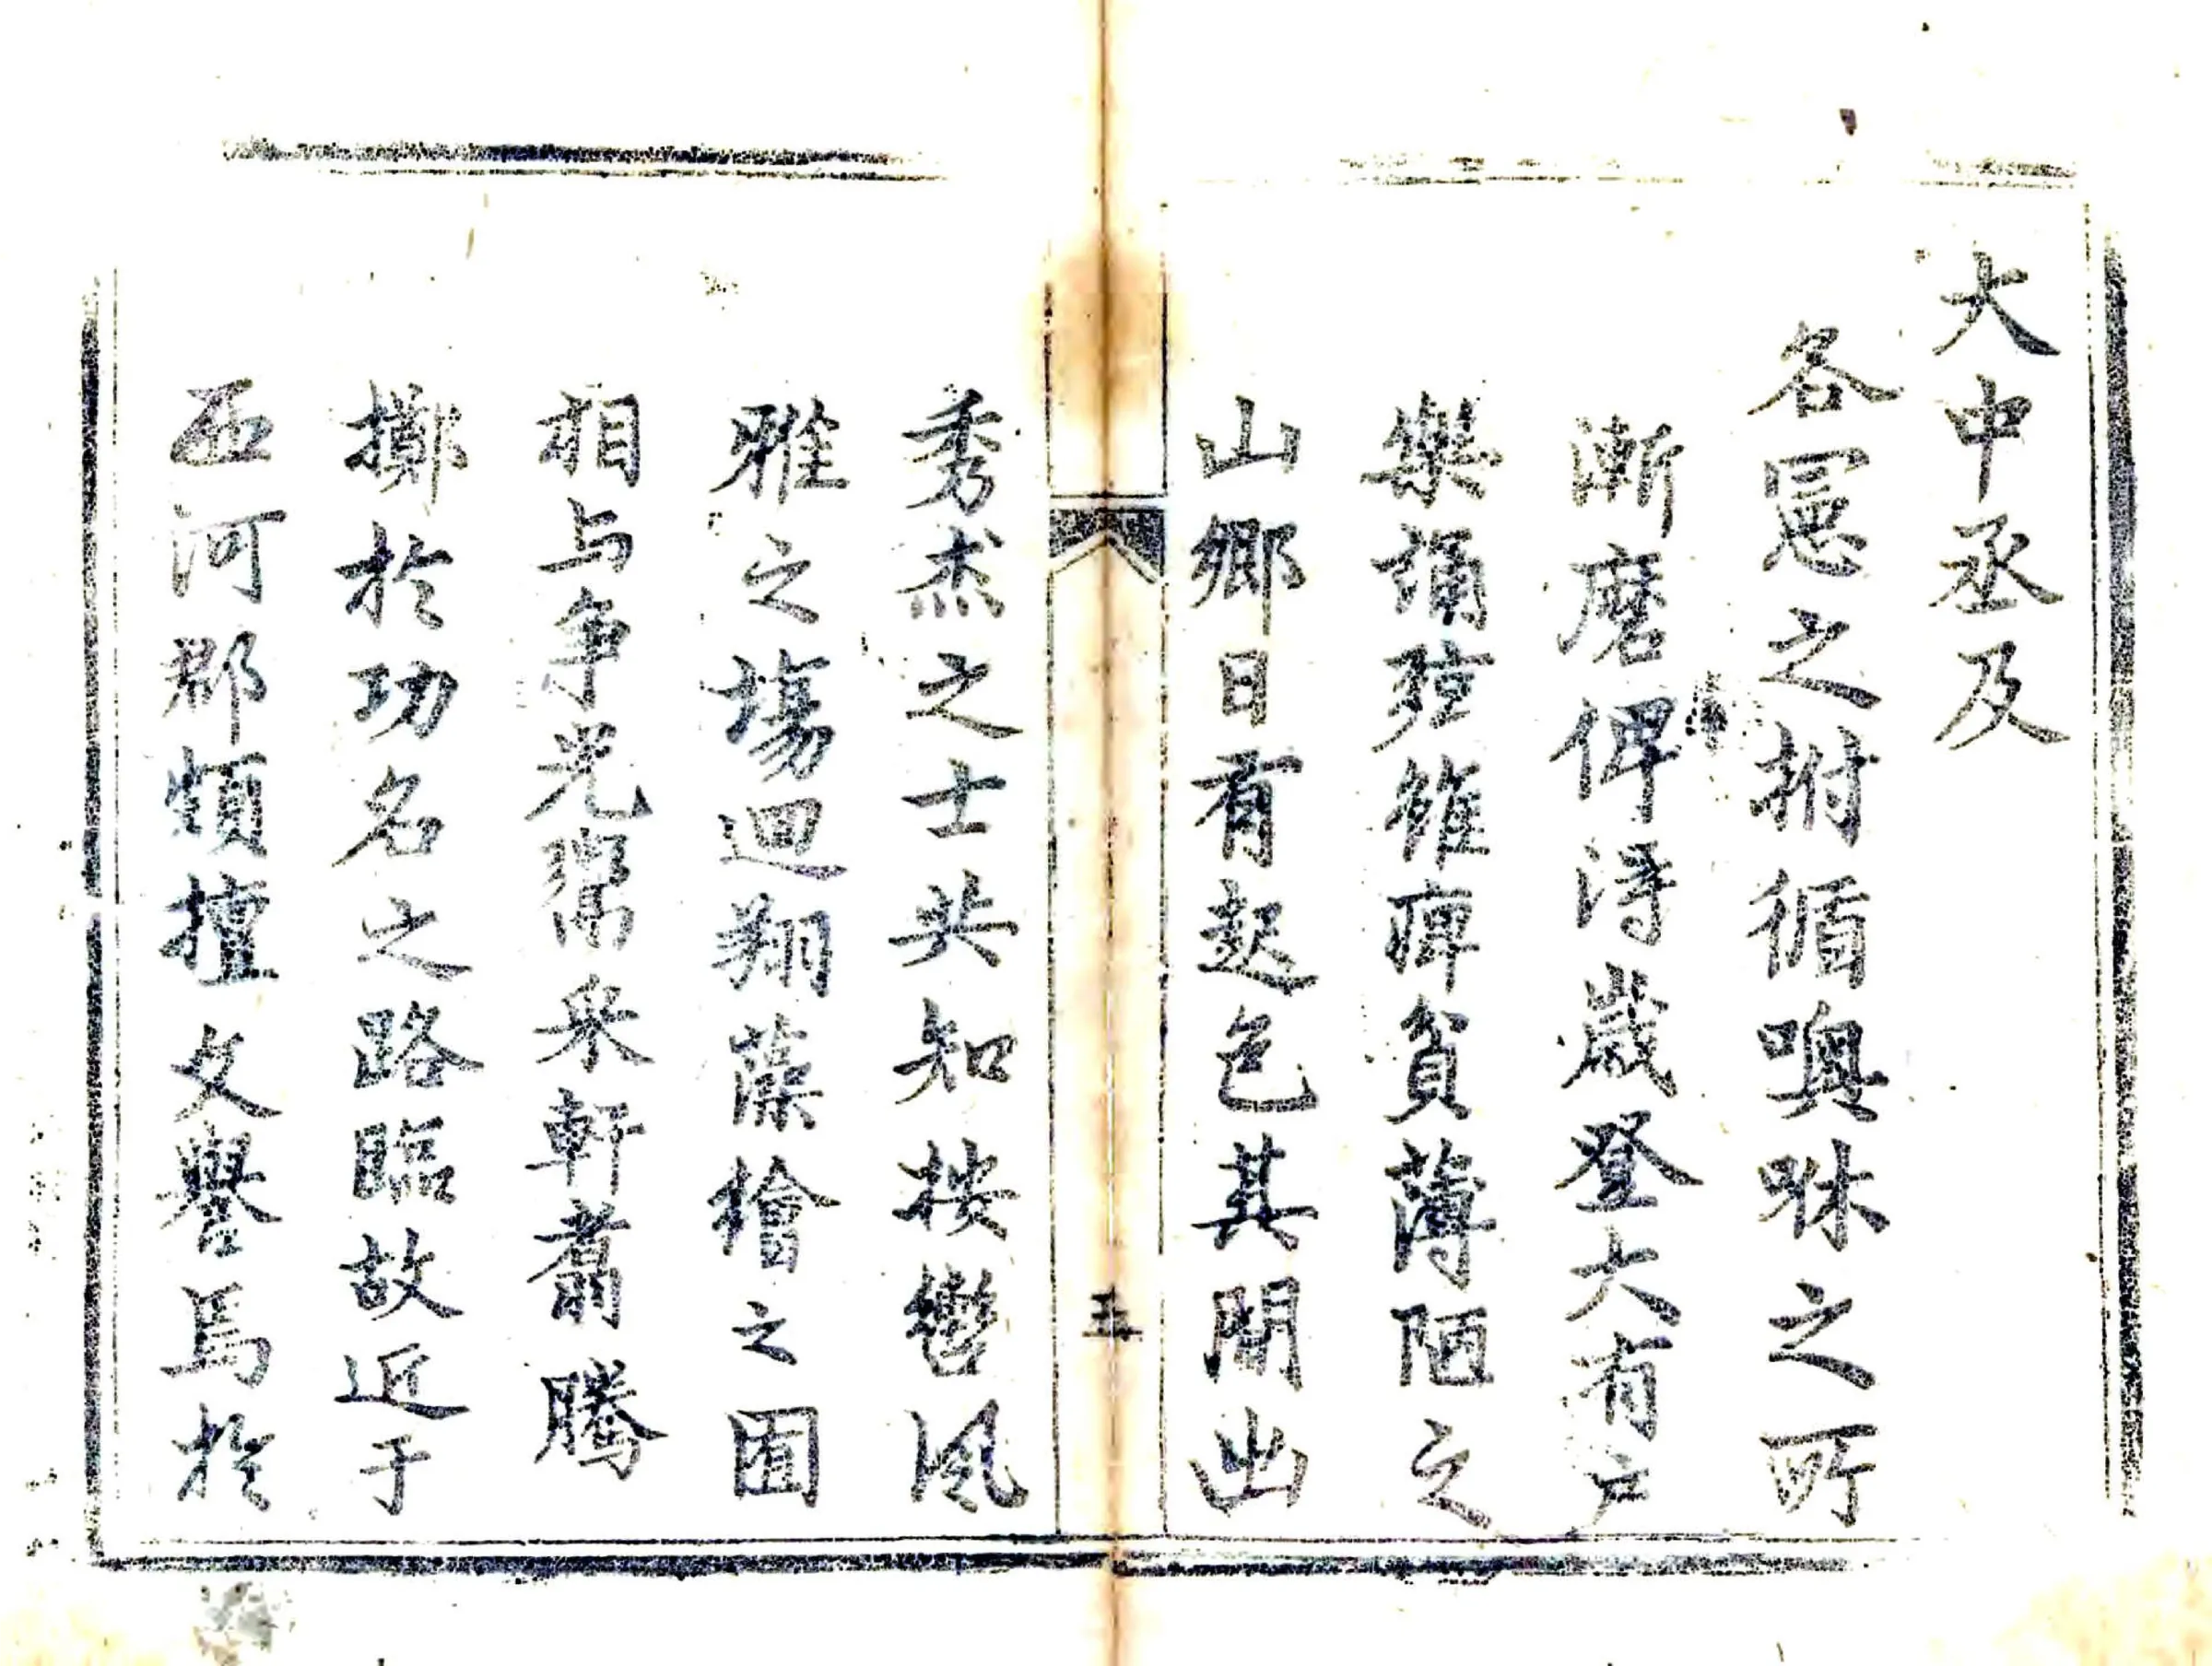 大中丞及
各憲之拊循噢咻之所
漸磨俾得歲登大有戶
樂誦弦雖痺貧薄陋之
山鄉日有起色其間出
五
秀杰之士共知按轡風
雅之場迴翔藻繪之囿
相与爭光鬻采軒翥騰
擲於功名之路臨故近于
西河郡頻擅文譽焉於